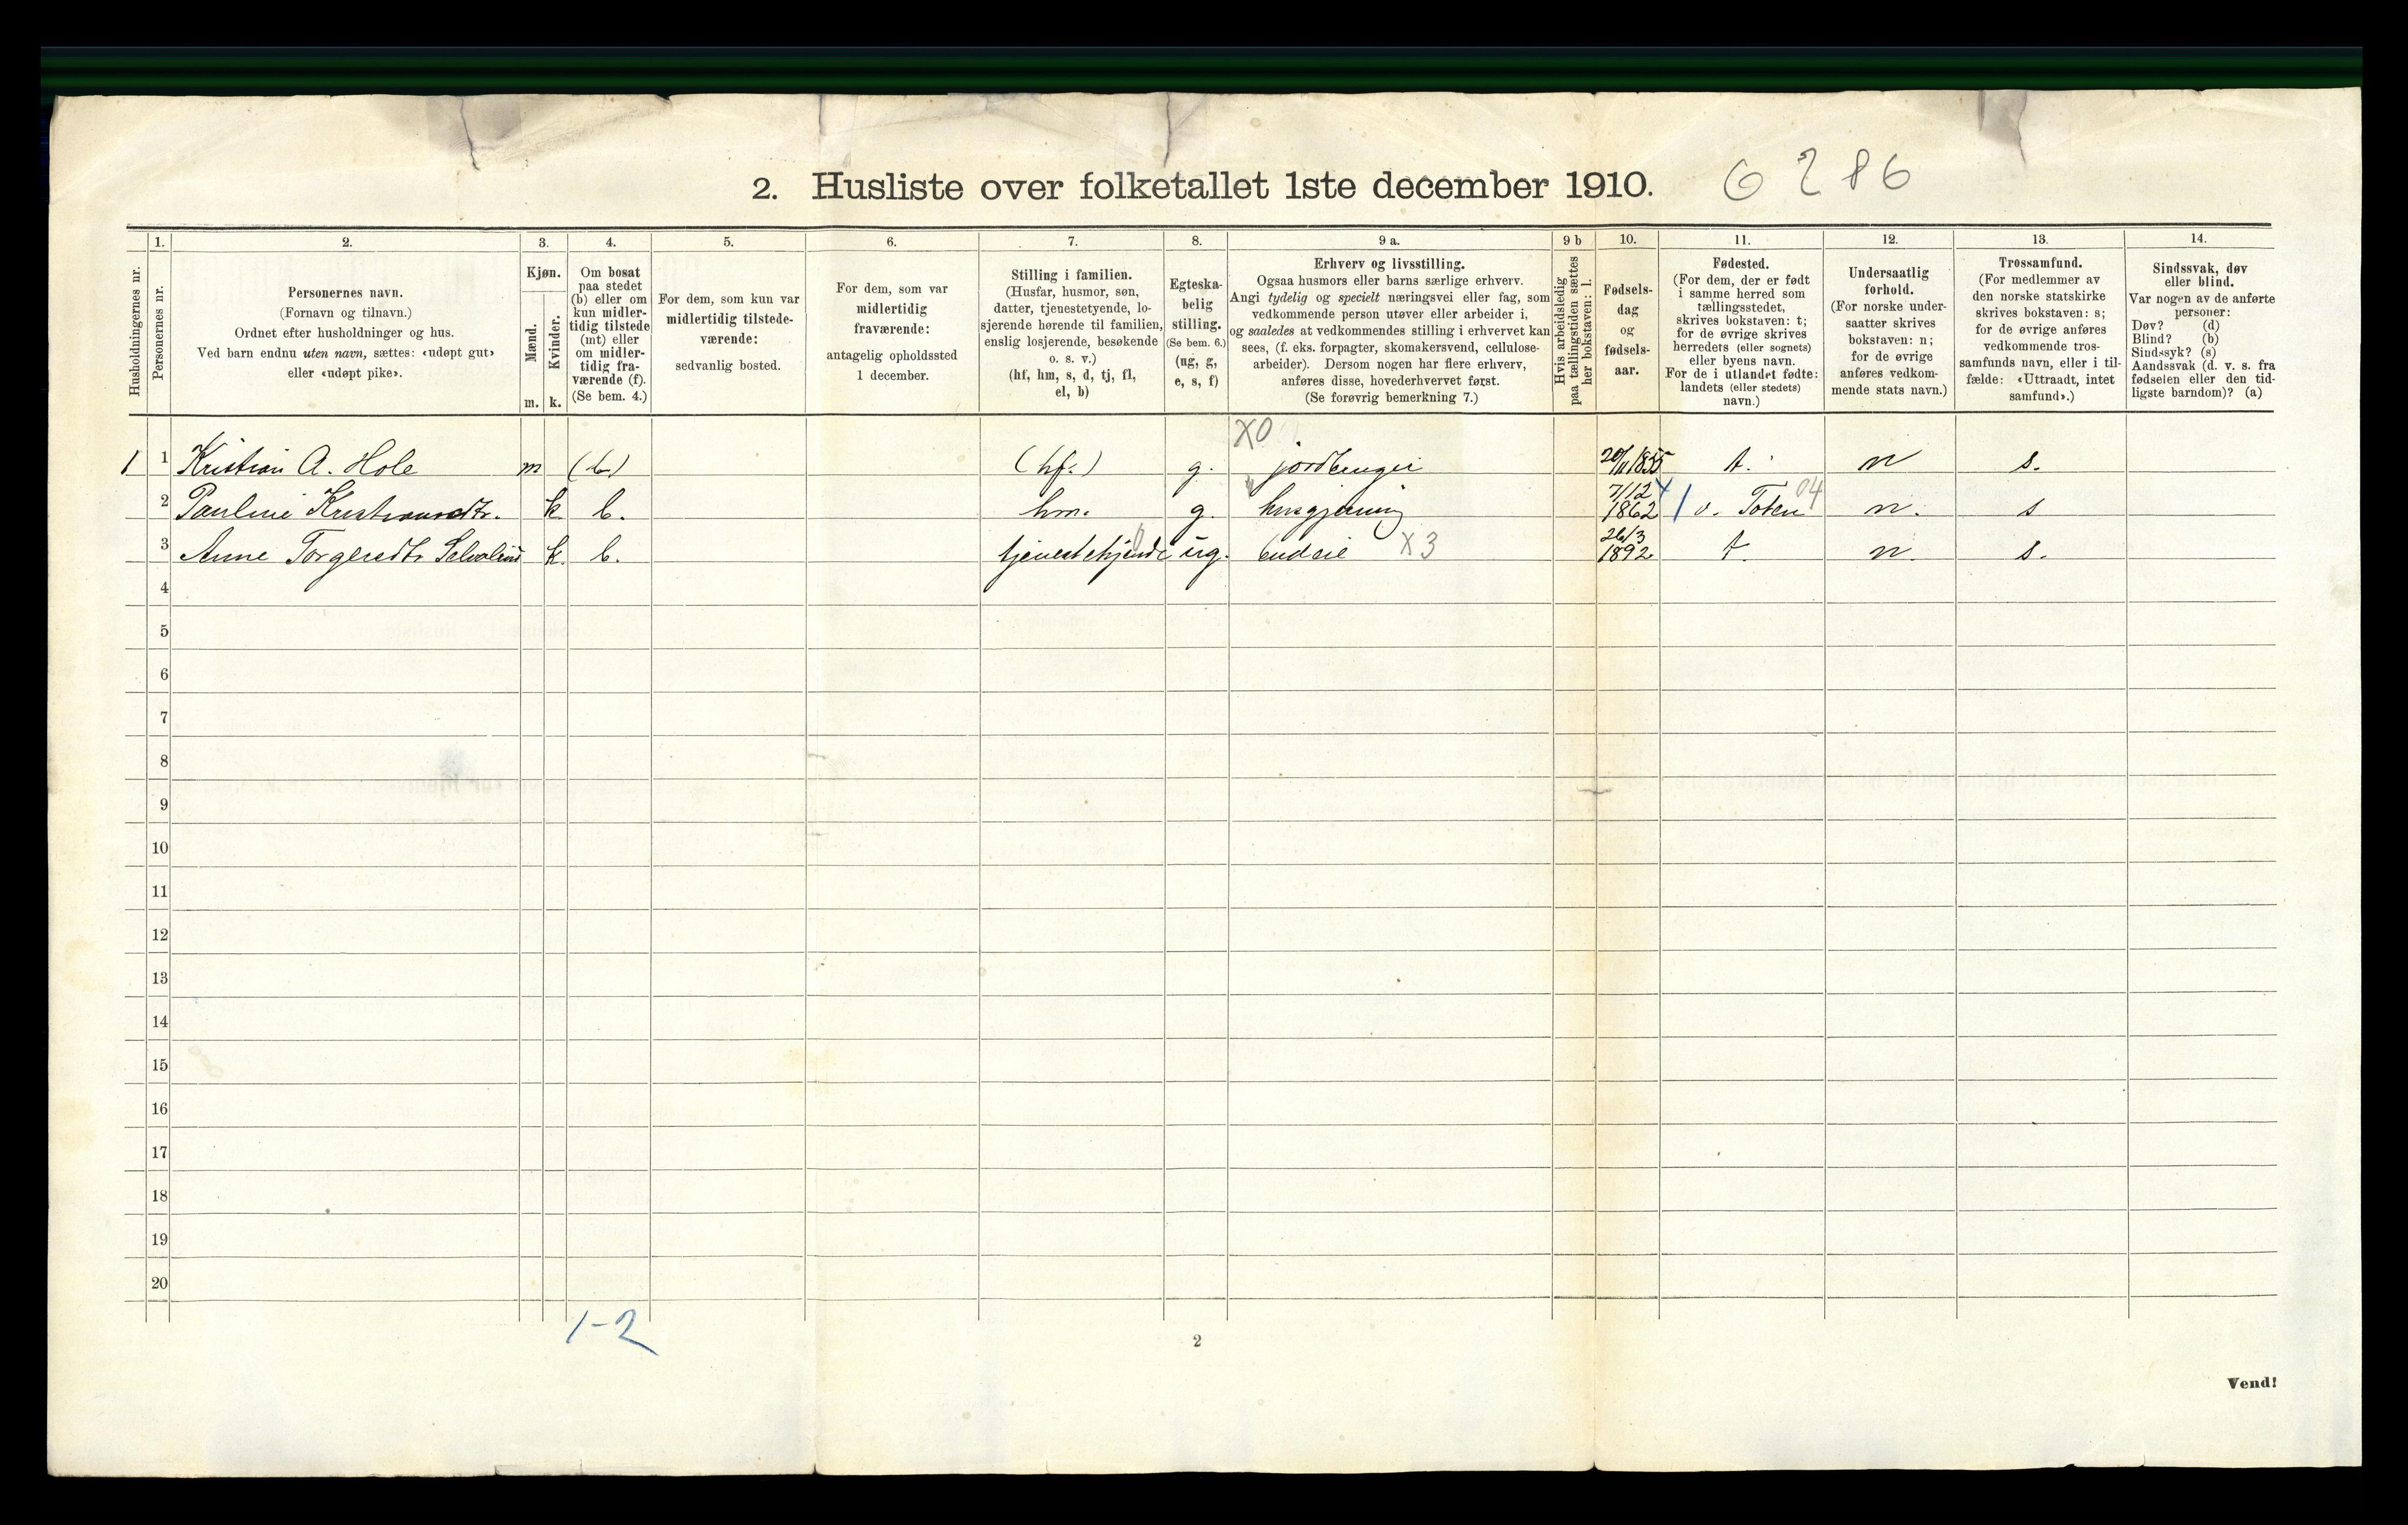 2. Husliste over folketallet 1ste december 1910. 6286
1. 2. 3. 4. 5. 6. 7. 8. 9 a. 9 b 10. 11. 12. 13. 14.
Husholdningernes nr.
Personernes nr.
Personernes navn.
(Fornavn og tilnavn.)
Ordnet efter husholdninger og hus.
Ved barn endnu uten navn, sættes: «udøpt gut»
eller «udøpt pike».
Kjøn.
Mænd.
Kvinder.
m. k.
Om bosat
paa stedet
(b) eller om
kun midler-
tidig tilstede
(mt) eller
om midler-
tidig fra-
værende (f).
(Se bem. 4.)
For dem, som kun var
midlertidig tilstede-
værende:
sedvanlig bosted.
For dem, som var
midlertidig
fraværende:
antagelig opholdssted
1 december.
Stilling i familien.
(Husfar, husmor, søn,
datter, tjenestetyende, lo-
sjerende hørende til familien,
enslig losjerende, besøkende
o. s. v.)
(hf, hm, s, d, tj, fl,
el, b)
Egteska-
belig
stilling.
(Se bem. 6.)
(ug, g,
e, s, f)
Erhverv og livsstilling.
Ogsaa husmors eller barns særlige erhverv.
Angi tydelig og specielt næringsvei eller fag, som
vedkommende person utøver eller arbeider i,
og saaledes at vedkommendes stilling i erhvervet kan
sees, (f. eks. forpagter, skomakersvend, cellulose-
arbeider). Dersom nogen har flere erhverv,
anføres disse, hovederhvervet først.
(Se forøvrig bemerkning 7.)
Hvis arbeidsledig
paa tællingstiden sættes
her bokstaven: l.
Fødsels-
dag
og
fødsels-
aar.
Fødested.
(For dem, der er født
i samme herred som
tællingsstedet,
skrives bokstaven: t;
for de øvrige skrives
herredets (eller sognets)
eller byens navn.
For de i utlandet fødte:
landets (eller stedets)
navn.)
Undersaatlig
forhold.
(For norske under-
saatter skrives
bokstaven: n;
for de øvrige
anføres vedkom-
mende stats navn.)
Trossamfund.
(For medlemmer av
den norske statskirke
skrives bokstaven: s;
for de øvrige anføres
vedkommende tros-
samfunds navn, eller i til-
fælde: «Uttraadt, intet
samfund».)
Sindssvak, døv
eller blind.
Var nogen av de anførte
personer:
Døv? (d)
Blind? (b)
Sindssyk? (s)
Aandssvak (d. v. s. fra
fødselen eller den tid-
ligste barndom)? (a)
X0
1 1 Kristian A. Hole m (b) (hf.) g. 1855 t. n s.
2 Pauline k. b. hm. g. husgjerning 7/12 1862 v. Toten 04 n. s
3 Anne k. b. ug. X3 26/3 1892 t. n. s.
4
5
6
7
8
9
10
11
12
13
14
15
16
17
18
19
20
1-2
2
Vend!